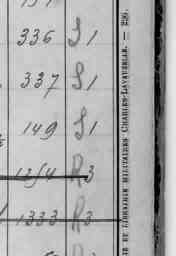 336 S 1
337 S 1
149 S 1
1254 R 3
1333 R 3
DE LIBRAIRIE MILITAIRES CHARLES-LAVAUZELLE. — 290.